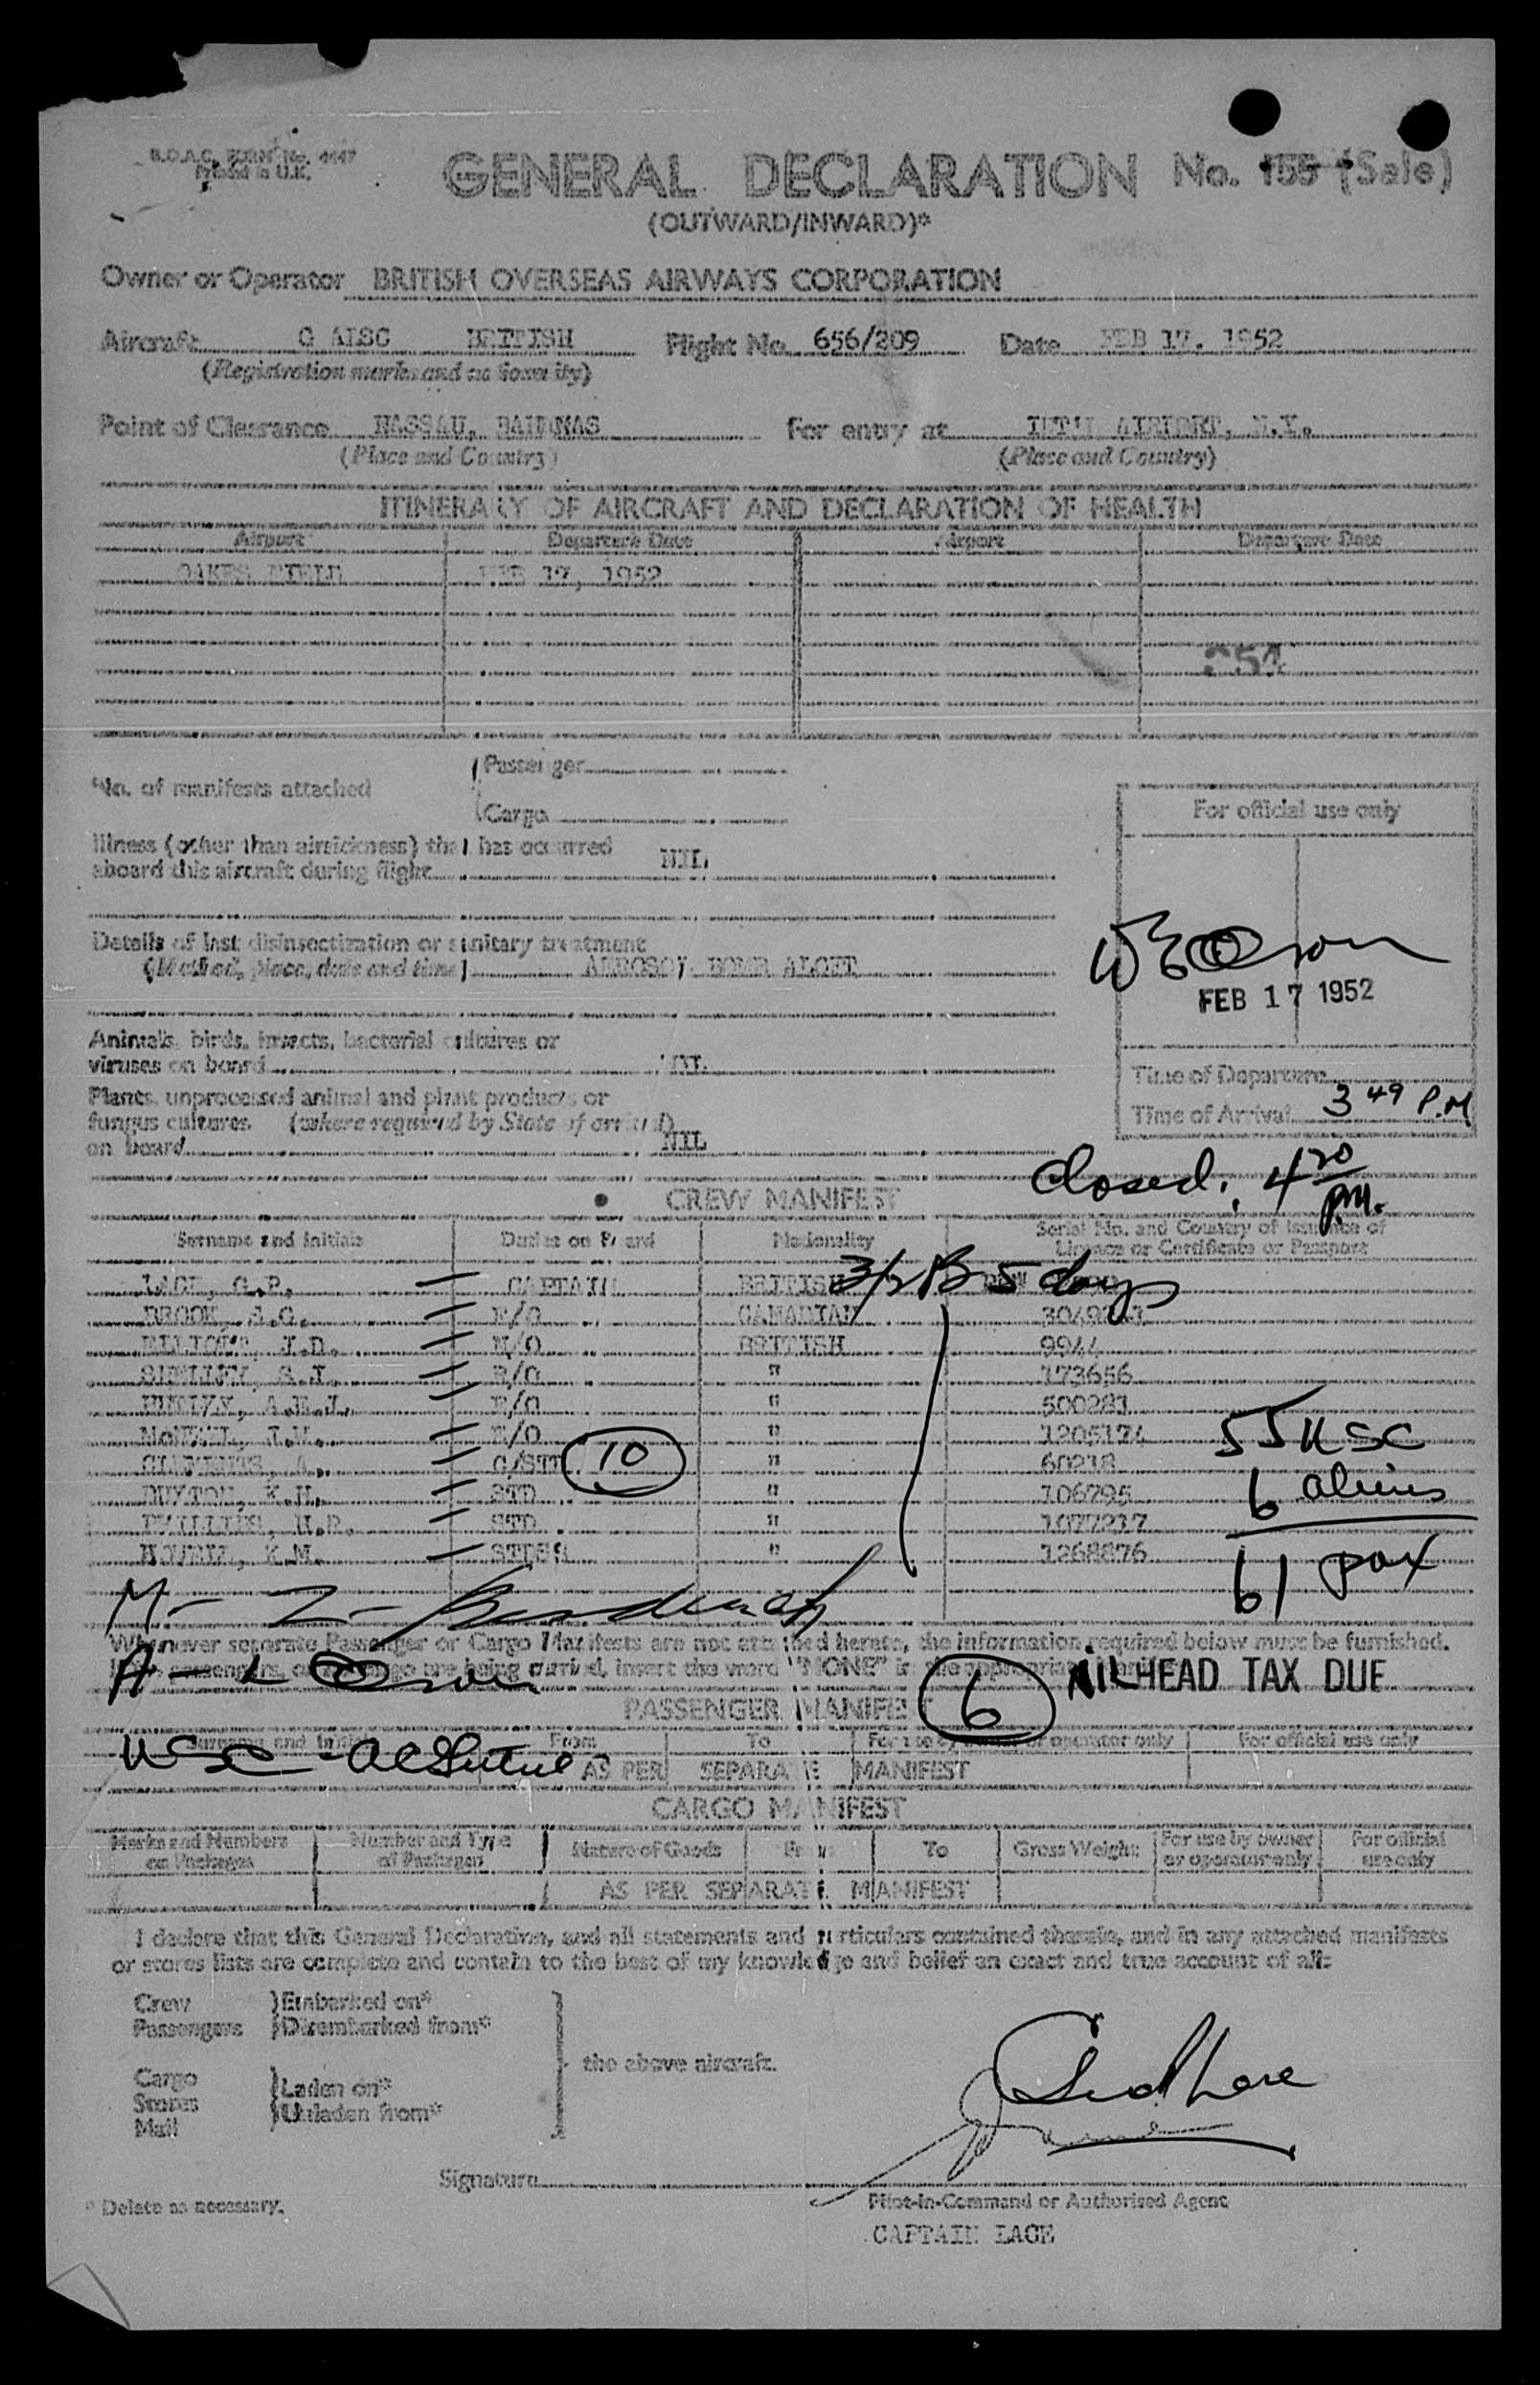 B.O.A.C. FORM No. 4447
Printed in U.K.
GENERAL DECLARATION No. 155 (Sale)
(OUTWARD/INWARD)*
Owner or Operator BRITISH OVERSEAS AIRWAYS CORPORATION
Aircraft BRITISH Flight No. 656/209 Date FEB 17. 1952
(Registration marks and nationality)
Point of Clearance NASSAU, BAHAMAS For entry at AIRPORT, N.Y.
(Place and Country) (Place and Country)
ITINERARY OF AIRCRAFT AND DECLARATION OF HEALTH
Airport Departure Date Airport Departure Date
OAKES FIELD FEB 17, 1952
No. of manifests attached
Passenger
Cargo
For official use only
Illness (other than airsickness) that has occurred
aboard this aircraft during flight NIL
Details of last disinsectization or sanitary treatment
(Method, place, date and time) AEROSOL BOMB ALOFT
FEB 17 1952
Animals, birds, insects, bacterial cultures or
viruses on board NIL
Time of Departure
Plants, unprocessed animal and plant products or
fungus cultures (where required by State of arrival)
on board NIL
Time of Arrival 3 49 P.M
Closed: 4 20 pm.
CREW MANIFEST
Surname and Initials Duties on Board Nationality Serial No. and Country of Issuance of
Licence or Certificate or Passport
LACE, G.P. CAPTAIN BRITISH
3/2 B 5 days
BROOK, F/O CANADIAN
J.D. N/O BRITISH 9944
R/O " 173656
E/O " 500281
E/O " 1205174
CLEMENTS, A. C/STD " 60218
10
STD " 106795
STD " 1077217
K.M. STDESS " 1268876
55 USC
6 aliens
61 pax
Whenever separate Passenger or Cargo Manifests are not attached hereto, the information required below must be furnished.
6
NIL HEAD TAX DUE
PASSENGER MANIFEST
Surname and Initials From To For use by owner or operator only For official use only
AS PER SEPARATE MANIFEST
CARGO MANIFEST
Marks and Numbers on Packages Number and Type of Packages Nature of Goods From To Gross Weight For use by owner or operator only For official use only
AS PER SEPARATE MANIFEST
I declare that this General Declaration, and all statements and particulars contained therein, and in any attached manifests
or stores lists are complete and contain to the best of my knowledge and belief an exact and true account of all:
Crew
Passengers
Embarked on*
Disembarked from*
Cargo
Stores
Mail
Laden on*
Unladen from*
the above aircraft.
Signature
* Delete as necessary.
Pilot-in-Command or Authorised Agent
CAPTAIN LACE